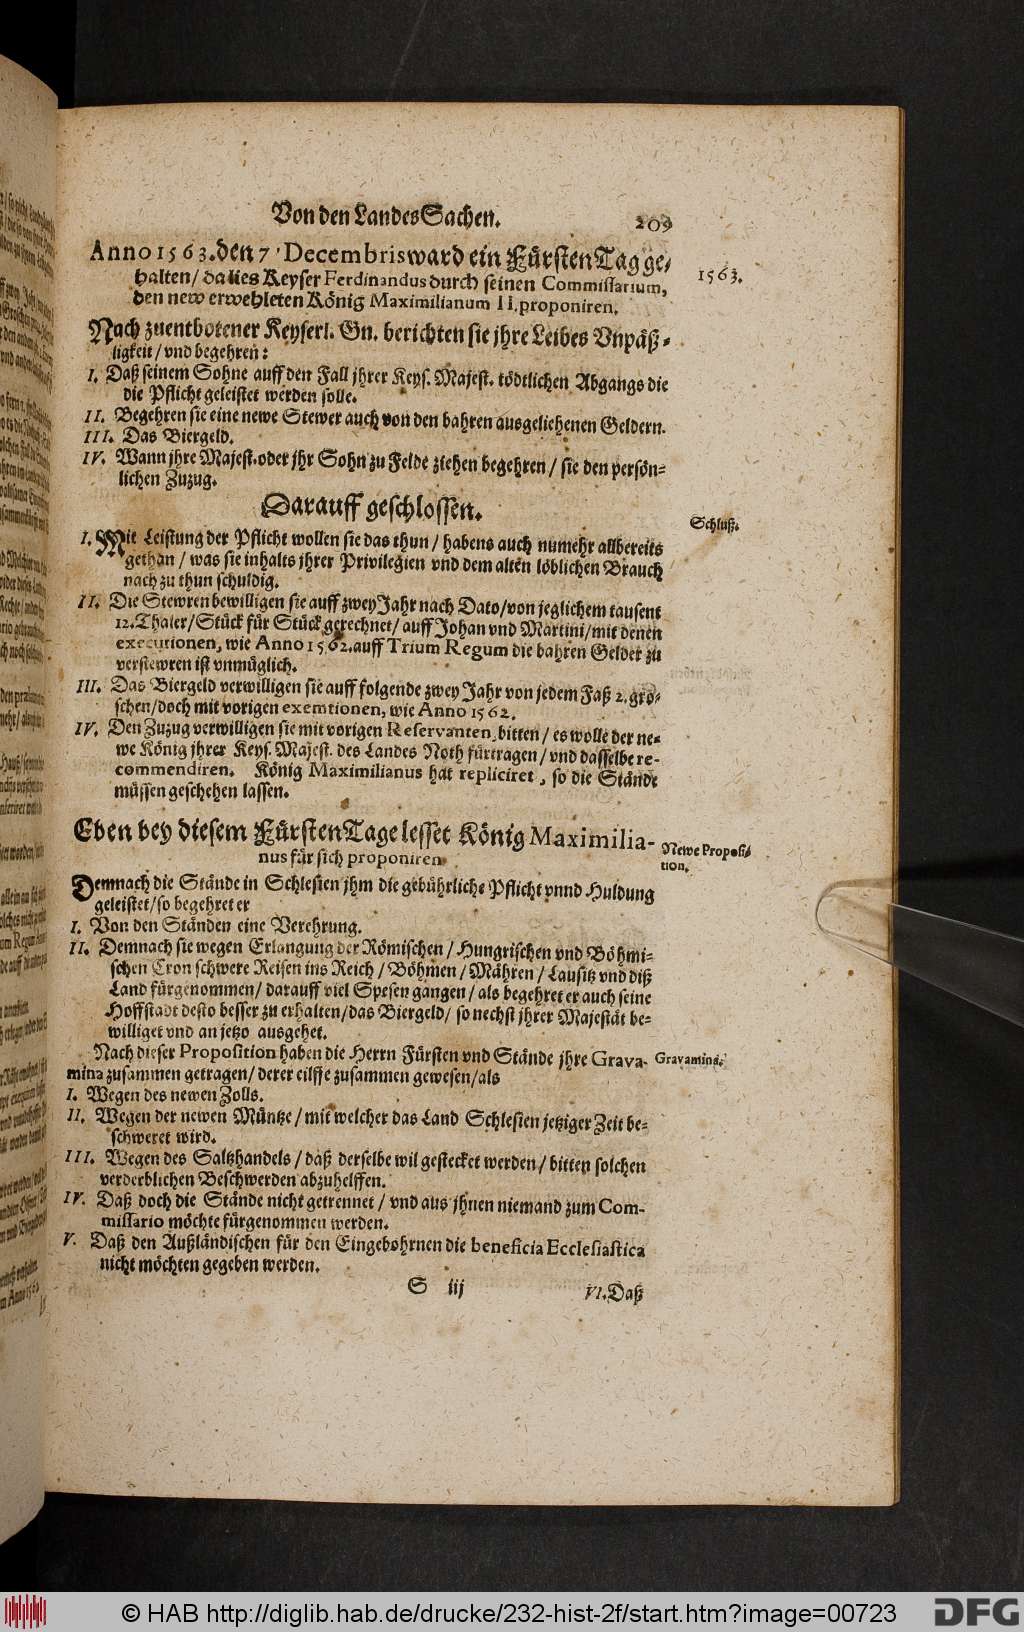 Von den Landes Sachen. 209
Anno 1563. den 7 Decembris ward ein Fürsten Tag ge-
halten / da lies Keyser Ferdinandus durch seinen Commissarium,
den new erwehleten König Maximilianum II. proponiren.
1563.
Nach zuentbotener Keyserl. Gn. berichten sie jhre Leibes Vnpäß-
ligkeit / vnd begehren:
I. Daß seinem Sohne auff den Fall jhrer Keys. Majest. tödtlichen Abgangs die
die Pflicht geleistet werden solle.
II. Begehren sie eine newe Stewer auch von den bahren ausgeliehenen Geldern.
III. Das Biergeld.
IV. Wann jhre Majest. oder jhr Sohn zu Felde ziehen begehren / sie den persön-
lichen Zuzug.
Darauff geschlossen.
Schluß.
I. Mit Leistung der Pflicht wollen sie das thun / habens auch numehr allbereits
gethan / was sie inhalts jhrer Privilegien vnd dem alten löblichen Brauch
nach zu thun schuldig.
II. Die Stewren bewilligen sie auff zwey Jahr nach Dato / von jeglichem tausent
12. Thaler / Stück für Stück gerechnet / auff Johan vnd Martini / mit denen
executionen, wie Anno 1562. auff Trium Regum die bahren Gelder zu
verstewren ist vnmüglich.
III. Das Biergeld verwilligen sie auff folgende zwey Jahr von jedem Faß 2. gro-
schen / doch mit vorigen exemtionen, wie Anno 1562.
IV. Den Zuzug verwilligen sie mit vorigen Reservanten, bitten / es wolle der ne-
we König jhrer Keys. Majest. des Landes Noth fürtragen / vnd dasselbe re-
commendiren. König Maximilianus hat repliciret, so die Stände
müssen geschehen lassen.
Eben bey diesem Fürsten Tage lesset König Maximilia-
nus für sich proponiren
Newe Proposi-
tion.
Demnach die Stände in Schlesien jhm die gebührliche Pflicht vnnd Huldung
geleistet / so begehret er
I. Von den Ständen eine Verehrung.
II. Demnach sie wegen Erlangung der Römischen / Hungrischen vnd Böhmi-
schen Cron schwere Reisen ins Reich / Böhmen / Mähren / Lausitz vnd diß
Land fürgenommen / darauff viel Spesen gangen / als begehret er auch seine
Hoffstadt desto besser zu erhalten / das Biergeld / so nechst jhrer Majestät be-
williget vnd an jetzo ausgehet.
Nach dieser Proposition haben die Herrn Fürsten vnd Stände jhre Grava-
mina zusammen getragen / derer eilffe zusammen gewesen / als
Gravamina.
I. Wegen des newen Zolls.
II. Wegen der newen Müntze / mit welcher das Land Schlesien jetziger Zeit be-
schweret wird.
III. Wegen des Saltzhandels / daß derselbe wil gestecket werden / bitten solchen
verderblichen Beschwerden abzuhelffen.
IV. Daß doch die Stände nicht getrennet / vnd aus jhnen niemand zum Com-
missario möchte fürgenommen werden.
V. Daß den Außländischen für den Eingebohrnen die beneficia Ecclesiastica
nicht möchten gegeben werden.
S iij VI. Daß
© HAB http://diglib.hab.de/drucke/232-hist-2f/start.htm?image=00723
DFG